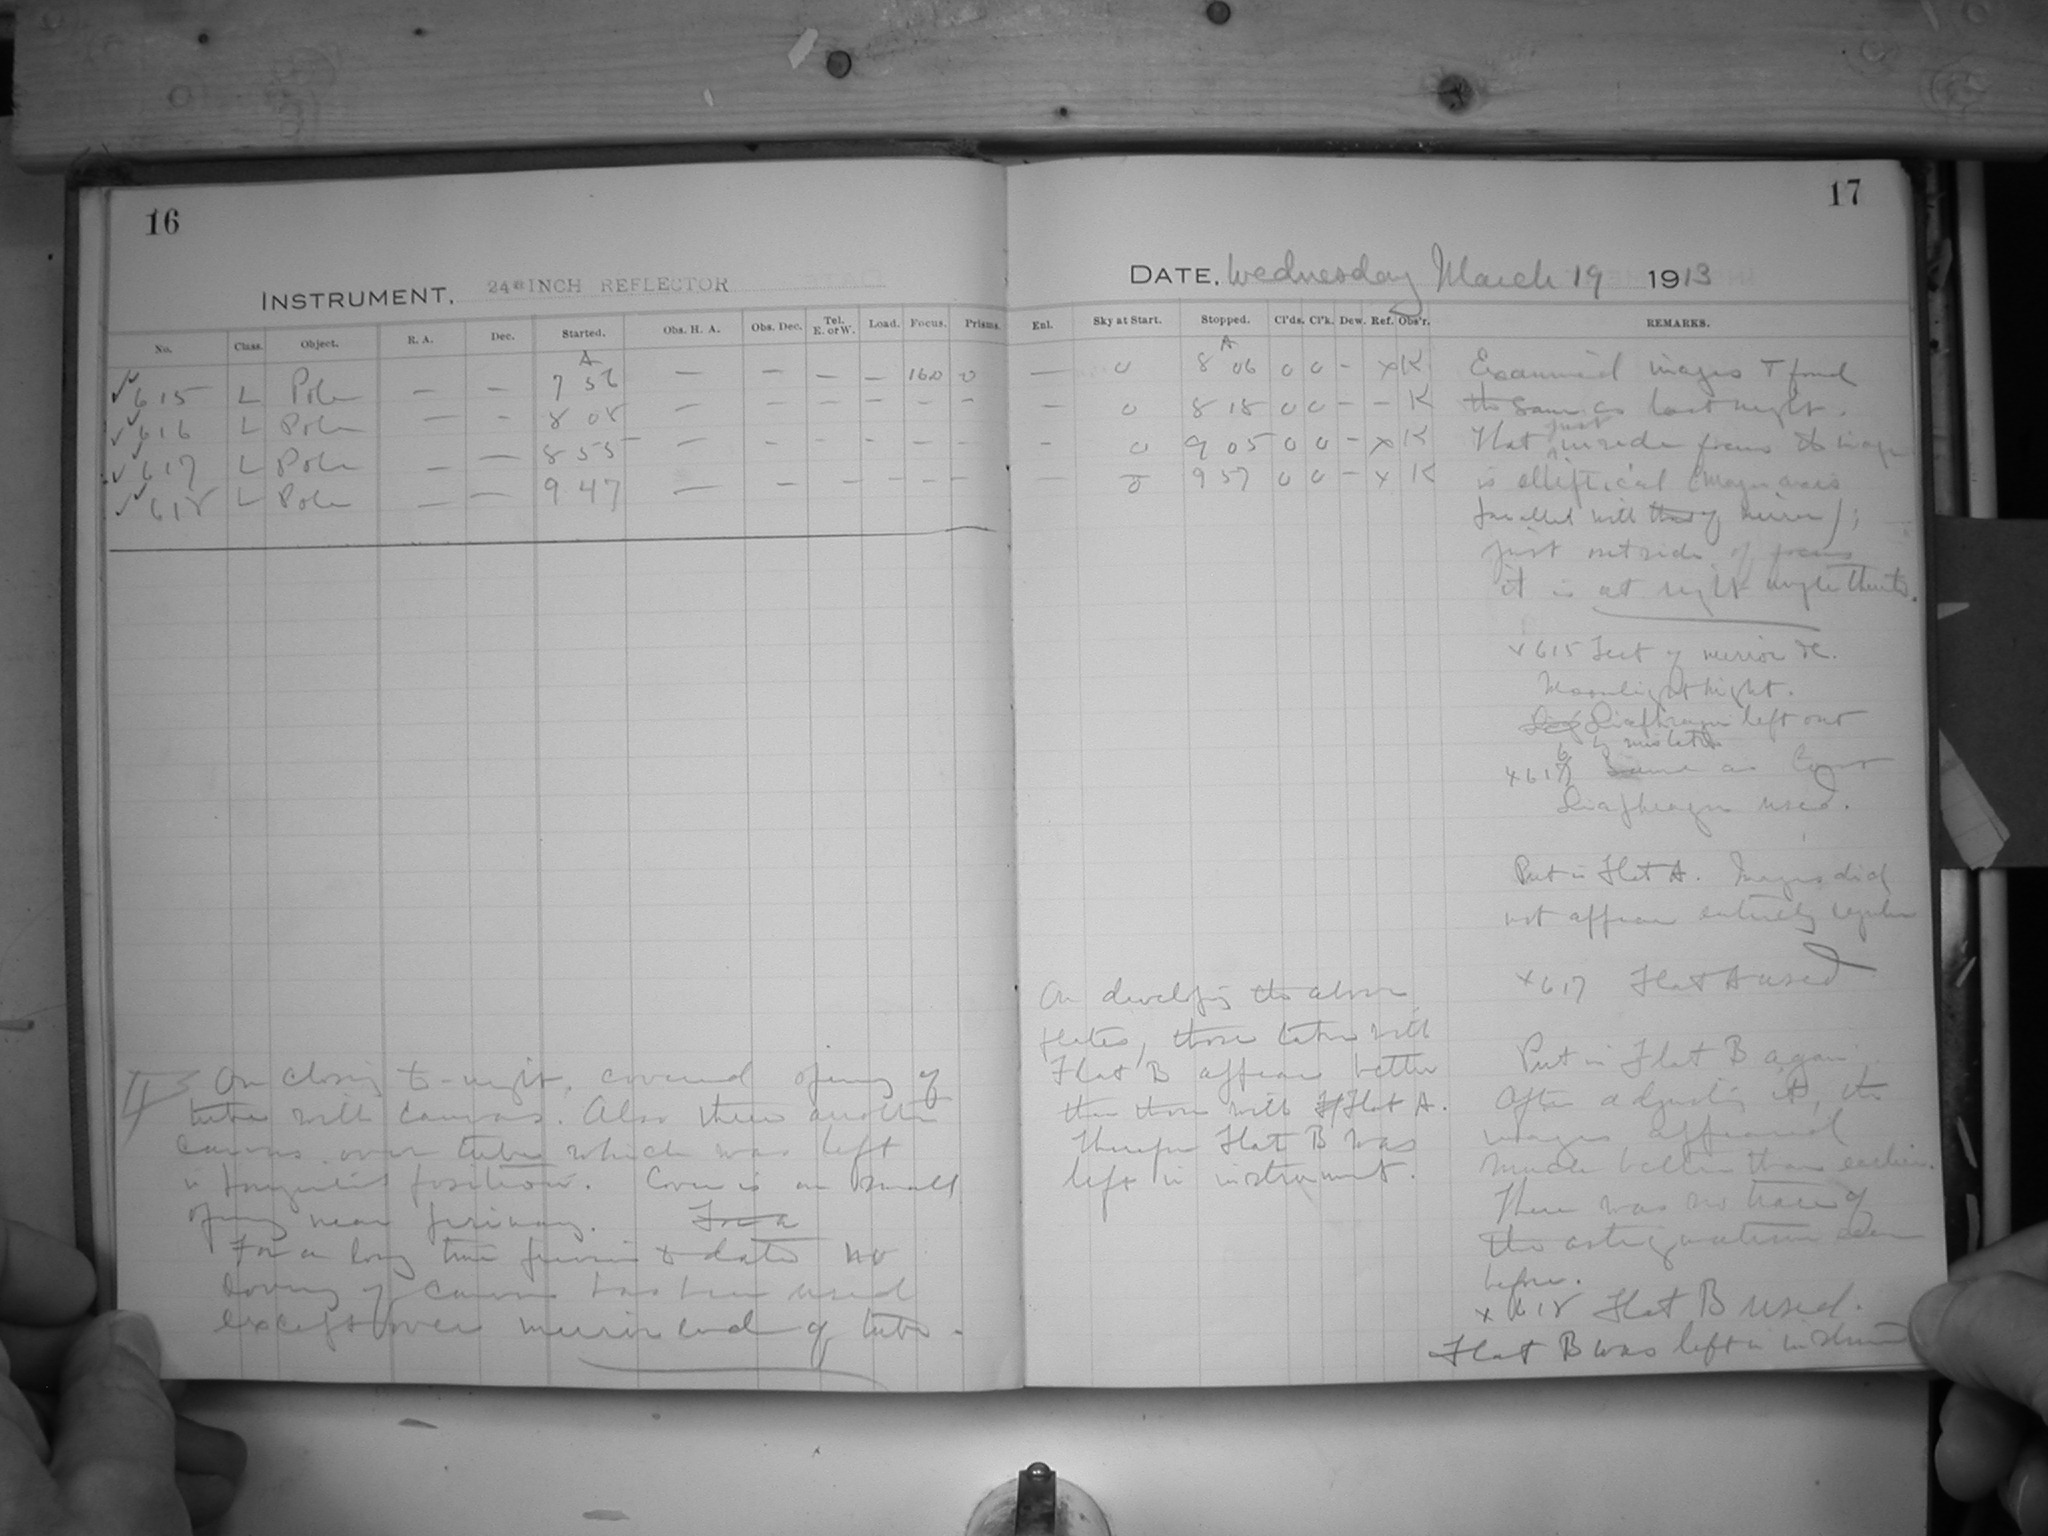 16
INSTRUMENT, 24-INCH REFLECTOR
No. Class. Object. R. A. Dec. Started. Obs. H. A. Obs. Dec. Tel. E. or W. Load. Focus. Prisms.
A
615 L Pole — — 7 56 — — — — 160 0
616 L Pole — — 8 08 — — — — — —
617 L Pole — — 8 55 — — — — — —
618 L Pole — — 9 47 — — — — — —
On closing to-night, covered opening of
tube with canvas. Also threw another
canvas over tube which was left
in position. Cover is on small
opening near
For a long time previous to date no
covering of canvas has been used
except over mirror end of tube.
17
DATE, Wednesday March 19 1913
Enl. Sky at Start. Stopped. Cl'ds. Cl'k. Dew. Ref. Obs'r. REMARKS.
A
— 0 8 06 0 0 - x K
— 0 8 18 0 0 - - K
- 0 9 05 0 0 - x K
— 0 9 57 0 0 - x K
Examined images & found
the same as last night.
That just inside focus the image
is elliptical (major axis
parallel with of mirror);
just outside of focus
it is at right angle thereto.
x 615 Test of mirror &c.
Moonlight night.
Diaphragm left out
by mistake
x 616 Same as
Diaphragm used.
Put in Flat A. Images did
not appear entirely regular
x 617 Flat A used
Put in Flat B again
After adjusting it, the
images appeared
much better than earlier.
There was no trace of
the astigmatism seen
before.
x 618 Flat B used.
Flat B was left in instrument
On developing the above
plates, those taken with
Flat B appear better
than those with Flat A.
Therefore Flat B was
left in instrument.